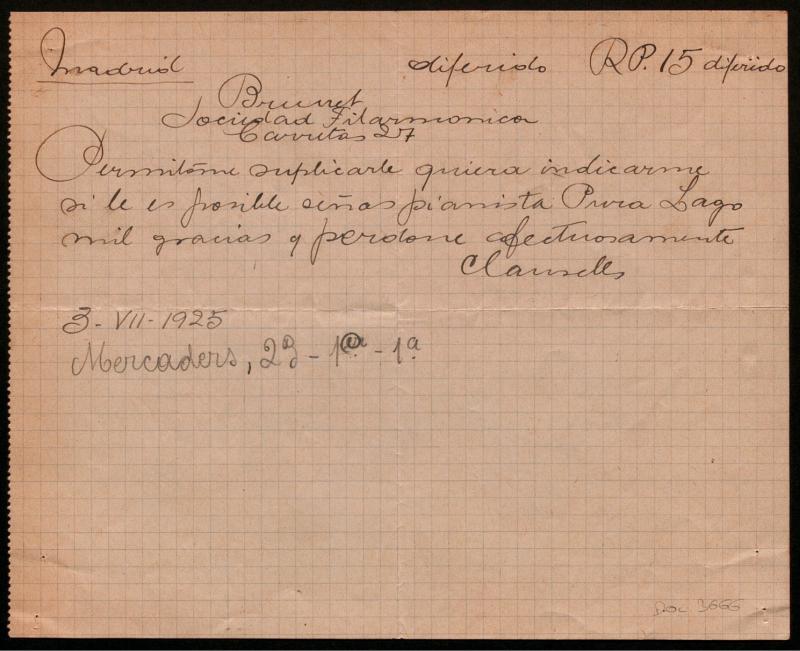 Madrid diferido RP. 15 diferido
Brunet
Sociedad Filarmonica
Carretas 27
Permitame suplicarle quiera indicarme
si le es posible señas pianista Pura Lago
mil gracias y perdone afectuosamente
Clausells
3-VII-1925
Mercaders, - 1er - 1ª
Doc 3666